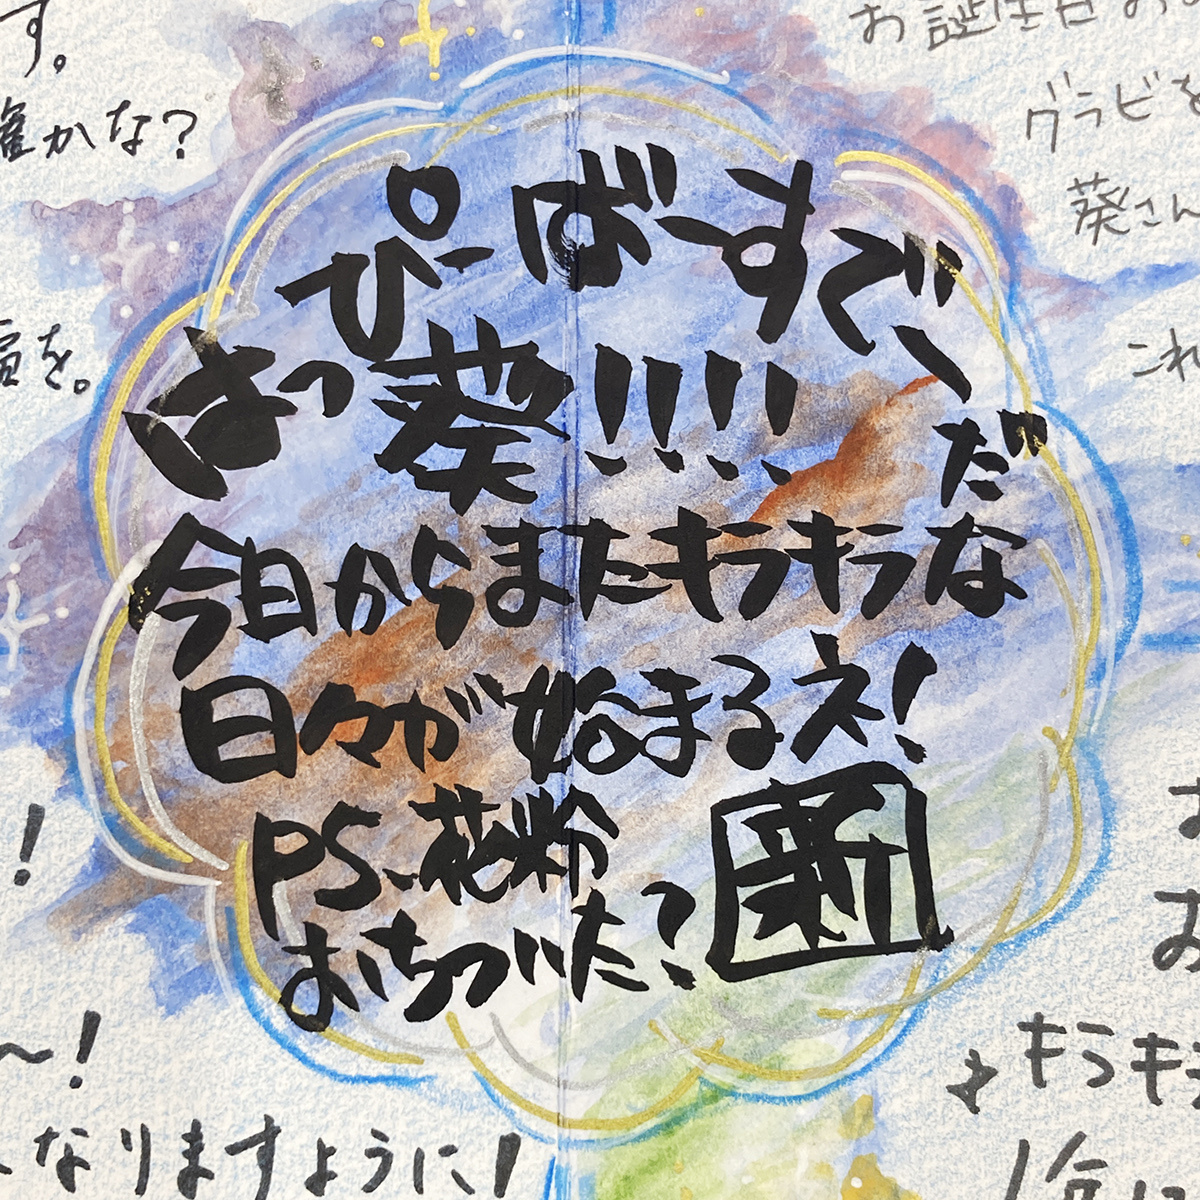 す。
確かな?
を。
お誕生日お
グラビを
葵さん
これ
はっぴーばーすでーだ
葵!!!!
今日からまたキラキラな
日々が始まるネ!
PS、花粉
おちついた?
新
!
〜!
なりますように!
お
キラキラ